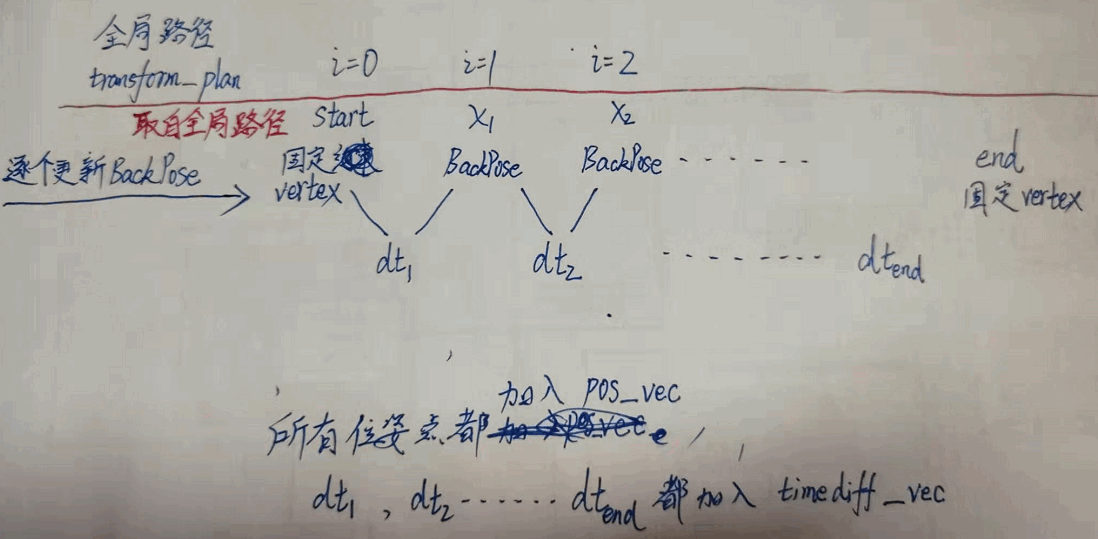 全局路径
transform_plan i=0 i=1 i=2
取自全局路径 start X1 X2
逐个更新BackPose 固定 BackPose BackPose ------- end
vertex 固定vertex
dt1 dt2 -------- dtend
加入 pos_vec
所有位姿点都 ,
dt1 , dt2 ------ dtend 都加入 timediff_vec